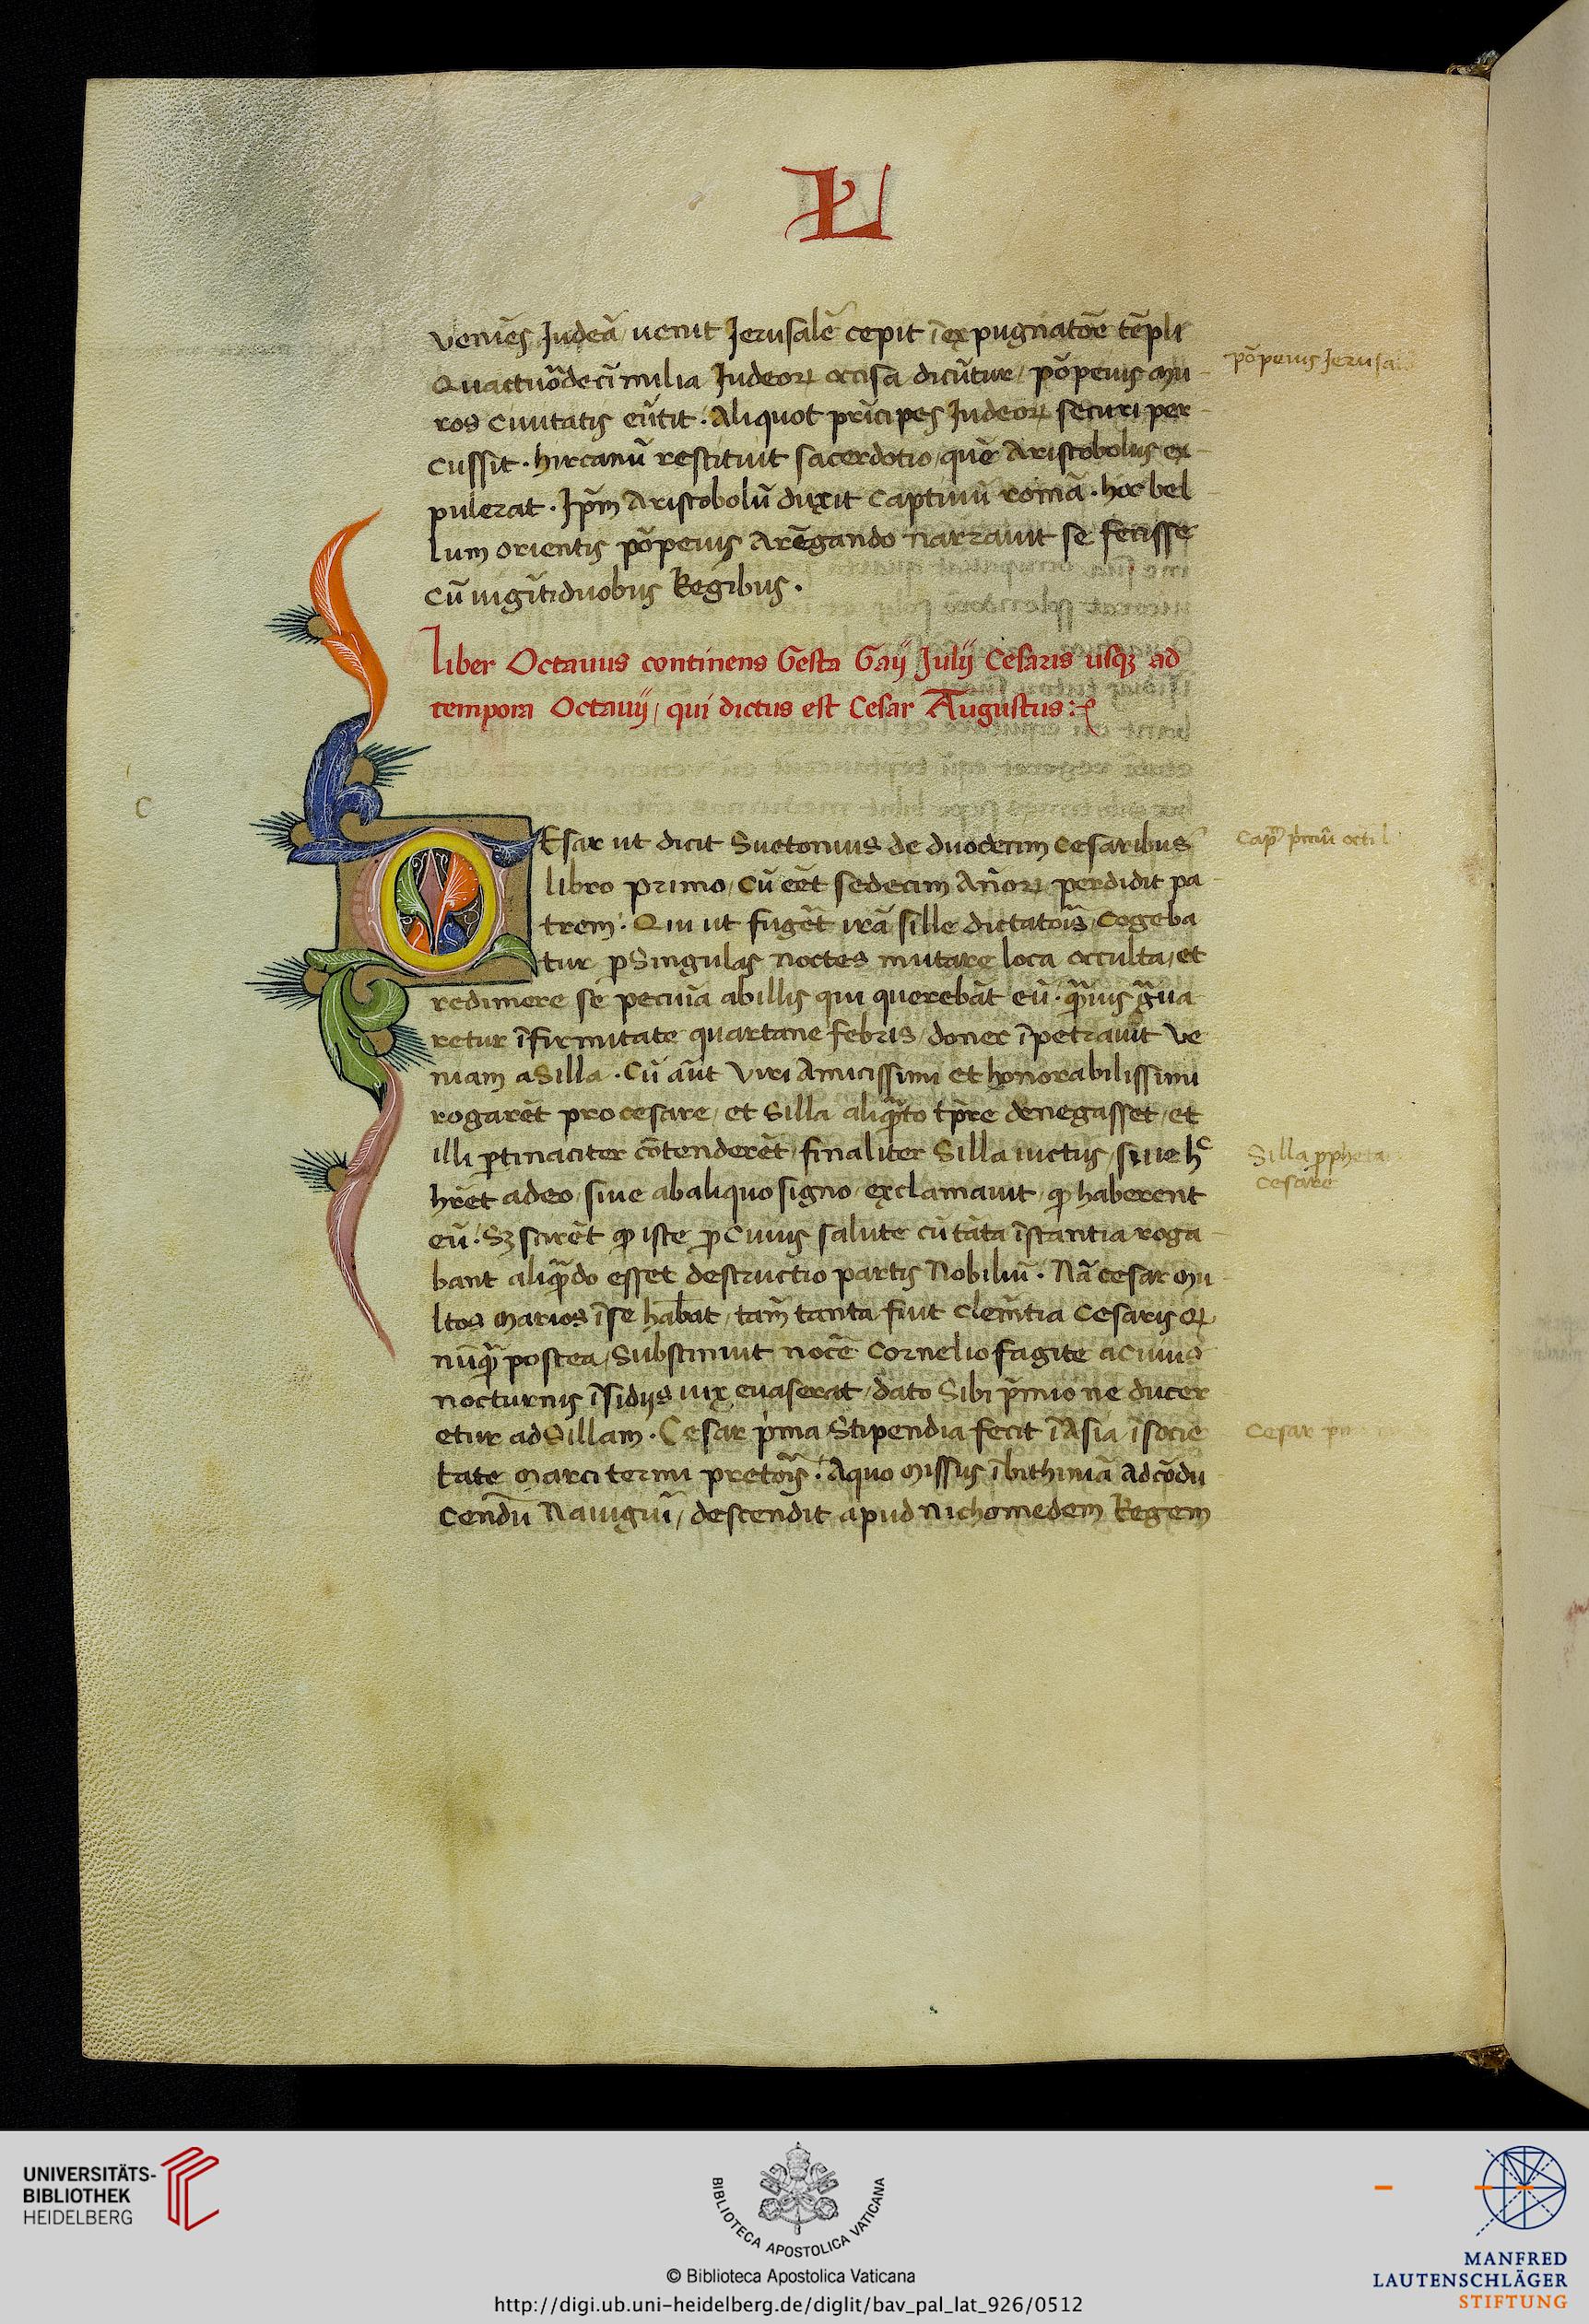 L
veniēs Judeā venit Jerusalē cepit ī expugnatōe tēpli
Quactuordecī milia Judeoꝝ occisa dicūtur / pōpeius mu
ros Civitatis eūtit. Aliquot prīcipes Judeoꝝ securi per
cussit. hircanū restituit sacerdotio, quē Aristobolus ex
pulerat. Ip̄m Aristobolū duxit Captivū romā. hoc bel
lum orientis pōpeius Arēgando narravit se fecisse
Cū vigīti duobus Regibus.
pōpeius Jerusa
Liber Octavus continens Gesta Gaij Julij Cesaris usqꝫ ad
tempora Octavij / qui dictus est Cesar Augustus:
C
CEsar ut dicit Suetonius de duodecim Cesaribus
libro primo, Cū eēt sedecim Añoꝝ perdidit pa
trem. Qui ut fugēt irā sille dictatoīs, Cogeba
tur ꝑ Singulas noctes mutare loca occulta, et
redimere se pecuīa ab illis qui querebāt eū. q̄ᵃvis ḡᵃva
retur īfirmitate quartane febris, donec īpetravit ve
niam a Silla. Cū aūt viri Amicissimi et honorabilissimi
rogarēt pro cesare, et Silla aliqᵃ̄to tp̄re denegasset, et
illi ꝑtinaciter cōtenderēt, finaliter Silla victus, sive hͨ
hr̄et a deo, sive ab aliquo signo, exclamavit, ꝙ haberent
eū. Sꝫ scirēt ꝙ iste ꝓ Cuius salute cū tāta īstantia roga
bant aliqᵃ̄do esset destructio partis Nobiliū. Nā cesar mu
ltos marios ī se hab̄at, tam̄ tanta fuit Clem̄tia Cesaris ꝙ
nūqᵃ̄ postea, Substinuit nocē Cornelio fagite a Cuius
nocturnis īsidijs vix evaserat, dato Sibi p̄mio ne ducer
etur ad Sillam. Cesar pͥma Stipendia fecit ī Asia ī socie
tate marci termi pretoīs. A quo missus ī bithiniā ad cōdu
Cendū Navigiū, descendit apud nichomedem Regem
Capͫ pͥmū octi l
Silla ꝓpheta
Cesare
Cesar
UNIVERSITÄTS-
BIBLIOTHEK
HEIDELBERG
BIBLIOTECA APOSTOLICA VATICANA
© Biblioteca Apostolica Vaticana
http://digi.ub.uni-heidelberg.de/diglit/bav_pal_lat_926/0512
MANFRED
LAUTENSCHLÄGER
STIFTUNG